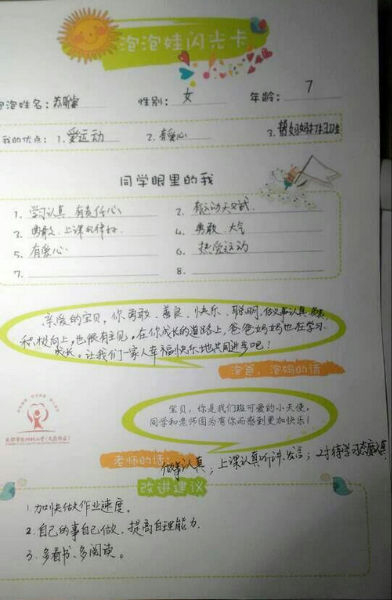 泡泡娃闪光卡
泡泡姓名： 性别：女 年龄：7
我的优点：1.爱运动 2.有爱心 3.帮妈妈打扫卫生
同学眼里的我
1. 学习认真 有责任心 2. 有运动天赋
3. 勇敢、上课 4. 勇敢 大气
5. 有爱心 6. 热爱运动
7. 8.
亲爱的宝贝，你勇敢、善良、快乐、聪明、做事认真
积极向上，也很有主见，在你成长的道路上，爸爸妈妈也在学习
成长，让我们一家人幸福快乐地共同进步吧！
泡爸、泡妈的话
宝贝，你是我们班可爱的小天使，
同学和老师因为有你而感到更加快乐！
老师的话：
做事认真；上课认真听讲、发言；对待学习态度认真
改进建议
1. 加快做作业速度。
2. 自己的事自己做、提高自理能力.
3. 多看书、多阅读。